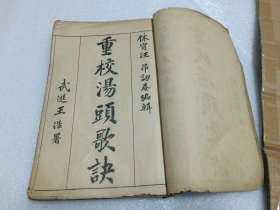 休寧汪訒菴編輯
重校湯頭歌訣
武進王浩署